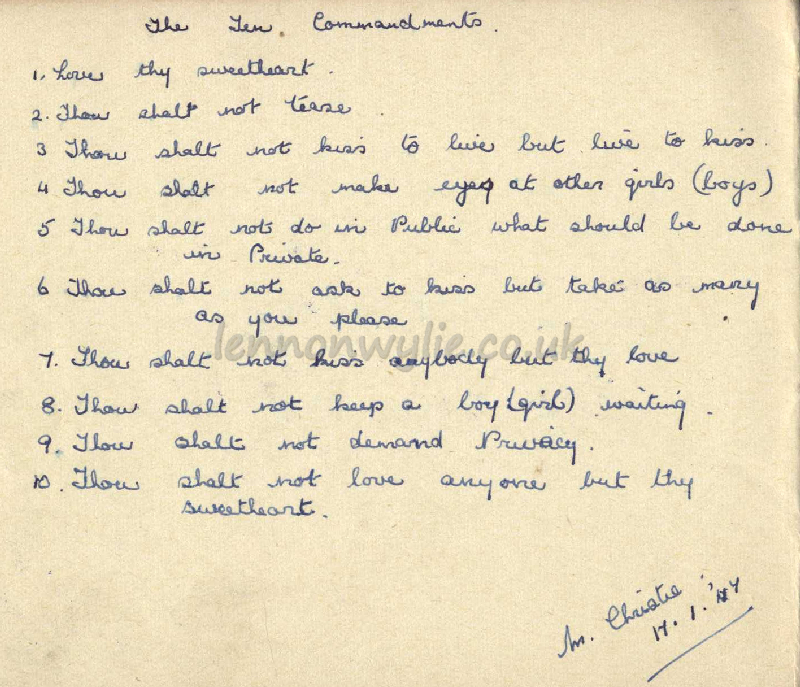 The Ten Commandments.
1. Love thy sweetheart.
2. Thou shalt not tease.
3 Thou shalt not kiss to live but live to kiss.
4 Thou shalt not make eyes at other girls (boys)
5 Thou shalt not do in Public what should be done
in Private.
6 Thou shalt not ask to kiss but take as many
as you please
lennonwylie.co.uk
7. Thou shalt not kiss anybody but thy love
8. Thou shalt not keep a boy (girl) waiting.
9. Thou shalt not demand Privacy.
10. Thou shalt not love anyone but thy
sweetheart.
M. Christie